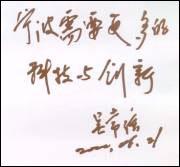 宁波需要更多的
科技与创新
吴常信
2000.06.21